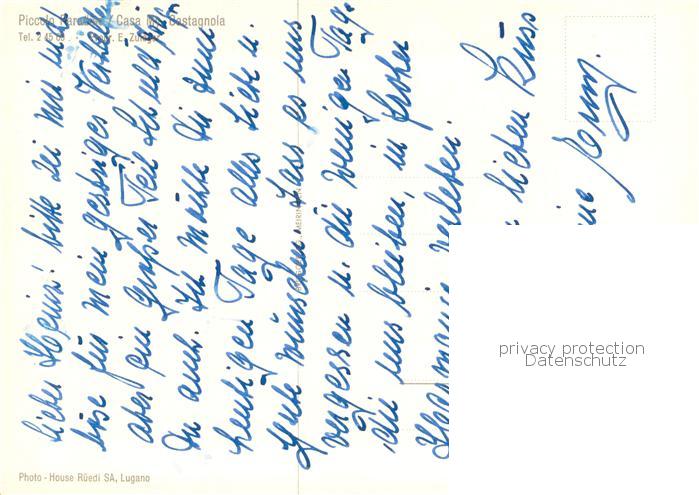 Piccolo Paradiso / Casa Castagnola
Tel. E.
lieber Heinz! bitte sei mir nicht
böse für mein gestriges Verhalten
aber ein großer Teil Schuld
Du auch. Ich möchte Dir zum
heutigen Tage alles Liebe u.
Gute wünschen. Lass es uns
vergessen u. die wenigen Tage
die uns bleiben, in froher
Harmonie verleben.
lieben Kuss
Photo - House Rüedi SA, Lugano
privacy protection
Datenschutz